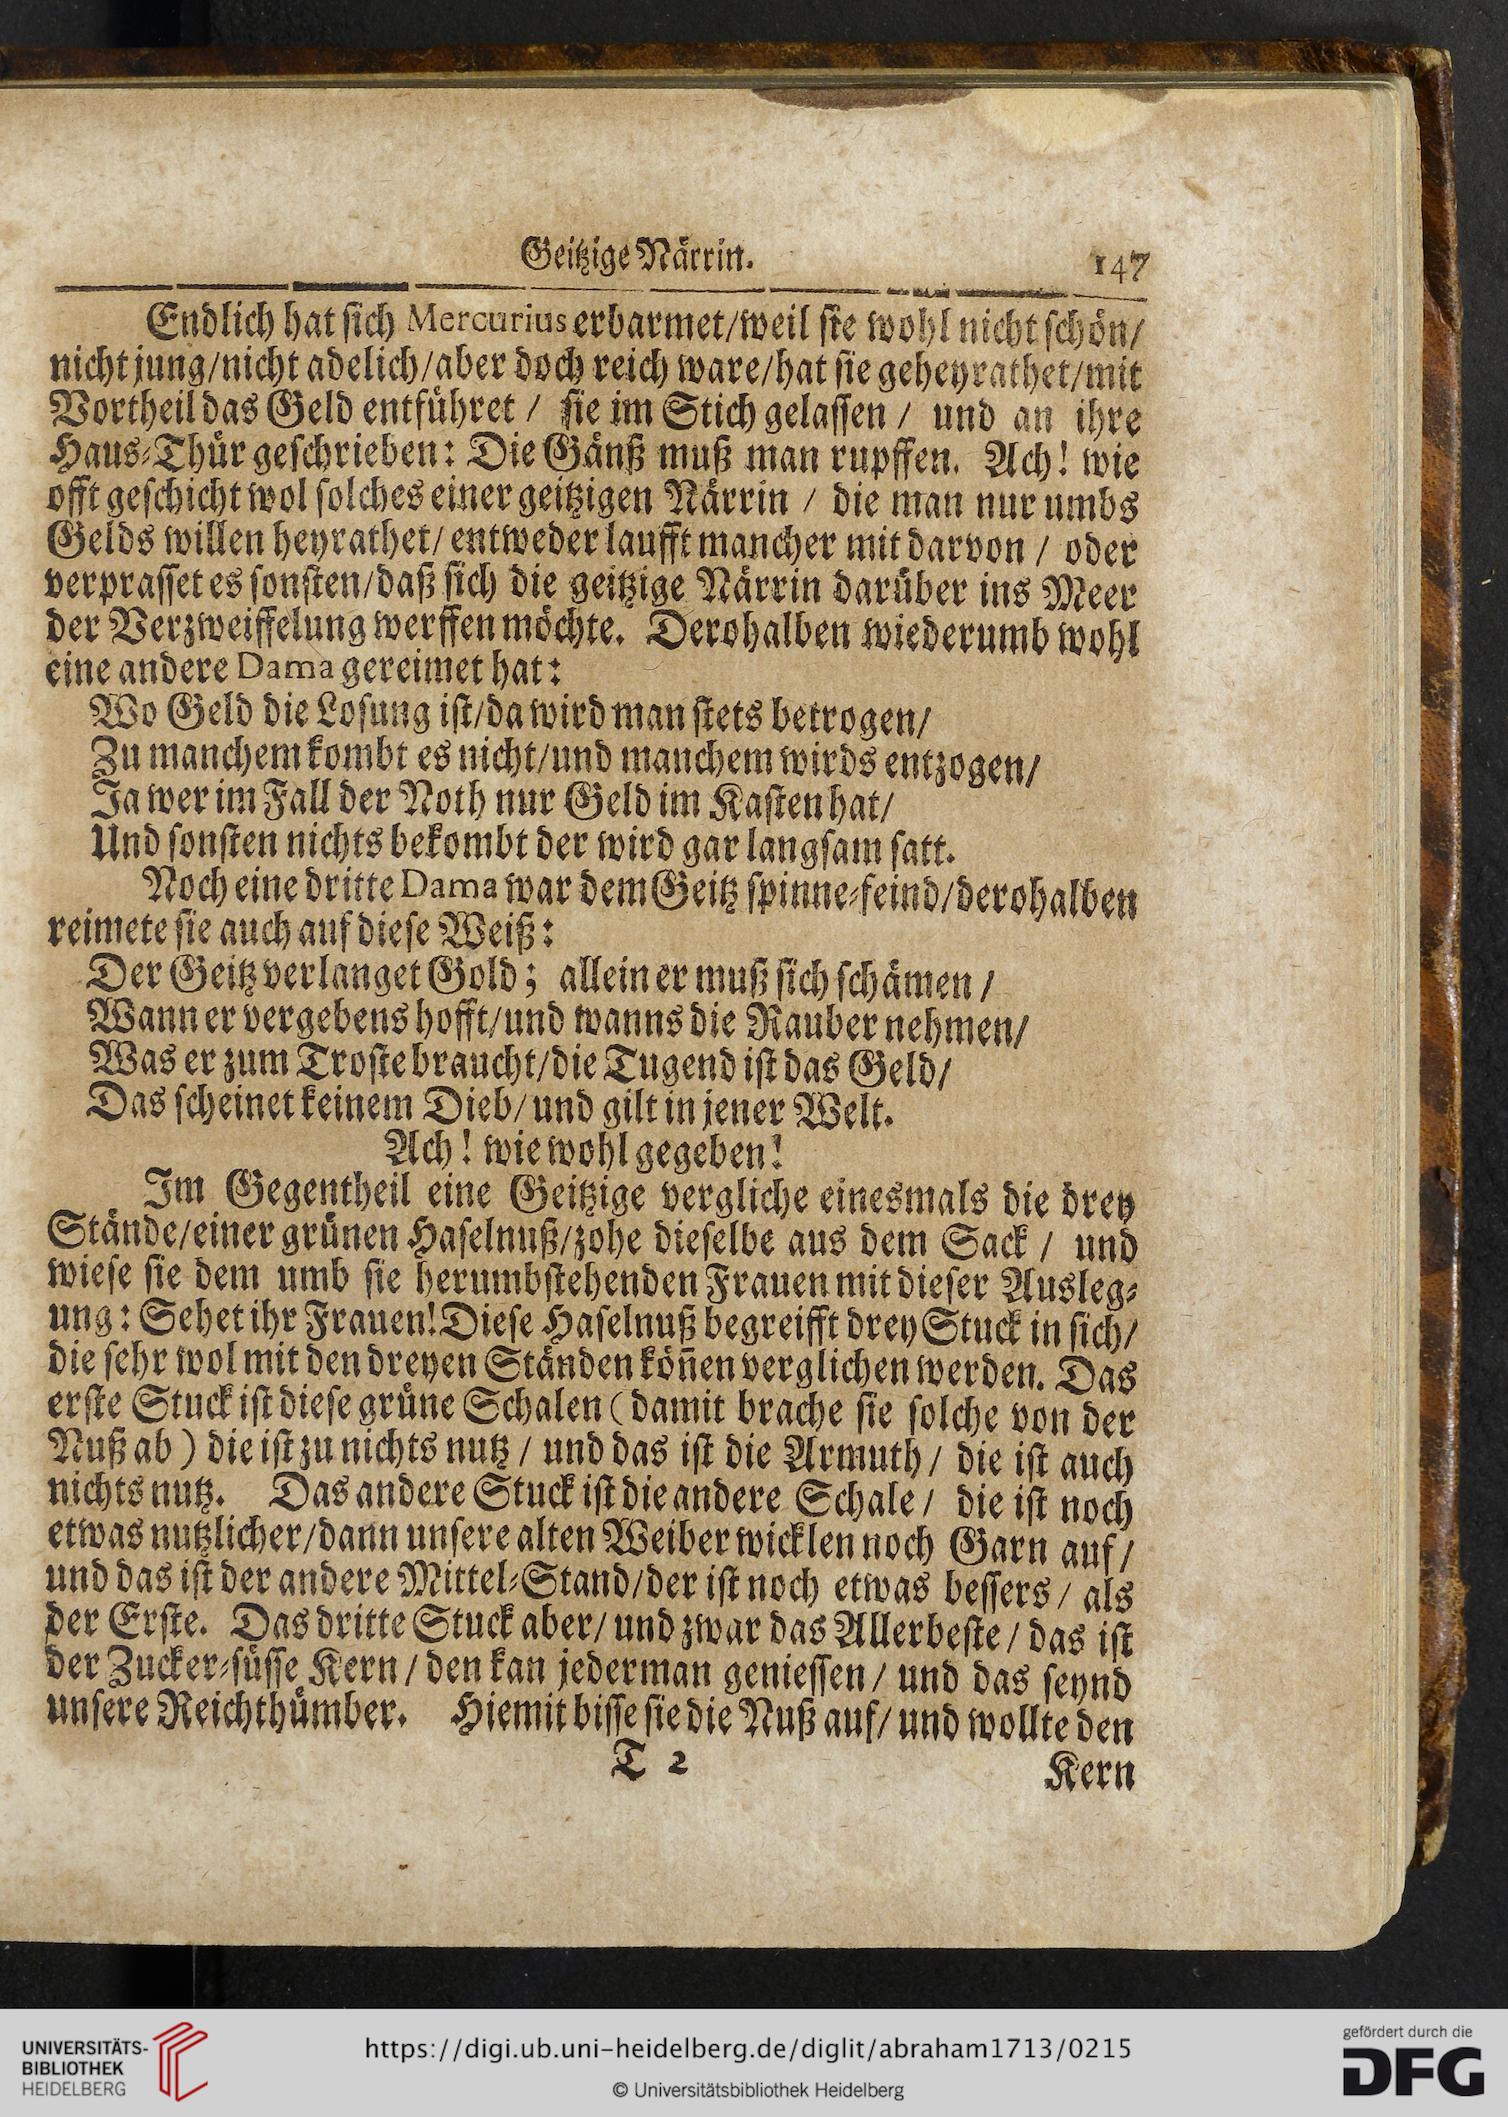 Geitzige Närrin. 147
Endlich hat sich Mercurius erbarmet/weil sie wohl nicht schön/
nicht jung/nicht adelich/aber doch reich ware/hat sie geheyrathet/mit
Vortheil das Geld entführet / sie im Stich gelassen / und an ihre
Haus-Thür geschrieben: Die Gänß muß man rupffen. Ach! wie
offt geschicht wol solches einer geitzigen Närrin / die man nur umbs
Gelds willen heyrathet/ entweder laufft mancher mit darvon / oder
verprasset es sonsten/daß sich die geitzige Närrin darüber ins Meer
der Verzweiffelung werffen möchte. Derohalben wiederumb wohl
eine andere Dama gereimet hat:
Wo Geld die Losung ist/da wird man stets betrogen/
Zu manchem kombt es nicht/und manchem wirds entzogen/
Ja wer im Fall der Noth nur Geld im Kasten hat/
Und sonsten nichts bekombt der wird gar langsam satt.
Noch eine dritte Dama war dem Geitz spinne-feind/derohalben
reimete sie auch auf diese Weiß:
Der Geitz verlanget Gold; allein er muß sich schämen /
Wann er vergebens hofft/und wanns die Rauber nehmen/
Was er zum Troste braucht/die Tugend ist das Geld/
Das scheinet keinem Dieb/und gilt in jener Welt.
Ach! wie wohl gegeben!
Im Gegentheil eine Geitzige vergliche einesmals die drey
Stände/einer grünen Haselnuß/zohe dieselbe aus dem Sack / und
wiese sie dem umb sie herumbstehenden Frauen mit dieser Ausleg-
ung: Sehet ihr Frauen! Diese Haselnuß begreifft drey Stuck in sich/
die sehr wol mit den dreyen Ständen köñen verglichen werden. Das
erste Stuck ist diese grüne Schalen (damit brache sie solche von der
Nuß ab) die ist zu nichts nutz / und das ist die Armuth/ die ist auch
nichts nutz. Das andere Stuck ist die andere Schale / die ist noch
etwas nutzlicher/dann unsere alten Weiber wicklen noch Garn auf/
und das ist der andere Mittel-Stand/der ist noch etwas bessers/ als
der Erste. Das dritte Stuck aber/ und zwar das Allerbeste/ das ist
der Zucker-süsse Kern/ den kan jederman geniessen/ und das seynd
unsere Reichthümber. Hiemit bisse sie die Nuß auf/ und wollte den
T 2 Kern
UNIVERSITÄTS-
BIBLIOTHEK
HEIDELBERG
https://digi.ub.uni-heidelberg.de/diglit/abraham1713/0215
© Universitätsbibliothek Heidelberg
gefördert durch die
DFG